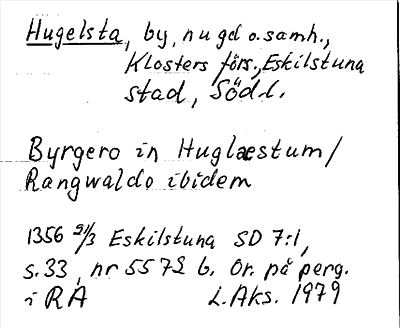 Hugelsta, by, nu gd o. samh.,
Klosters förs., Eskilstuna
stad, Södl.
Byrgero in Huglæstum/
Rangwaldo ibidem
1356 21/3 Eskilstuna SD 7:1,
s. 33, nr 5572 b. Or. på perg.
i RA L. Aks. 1979